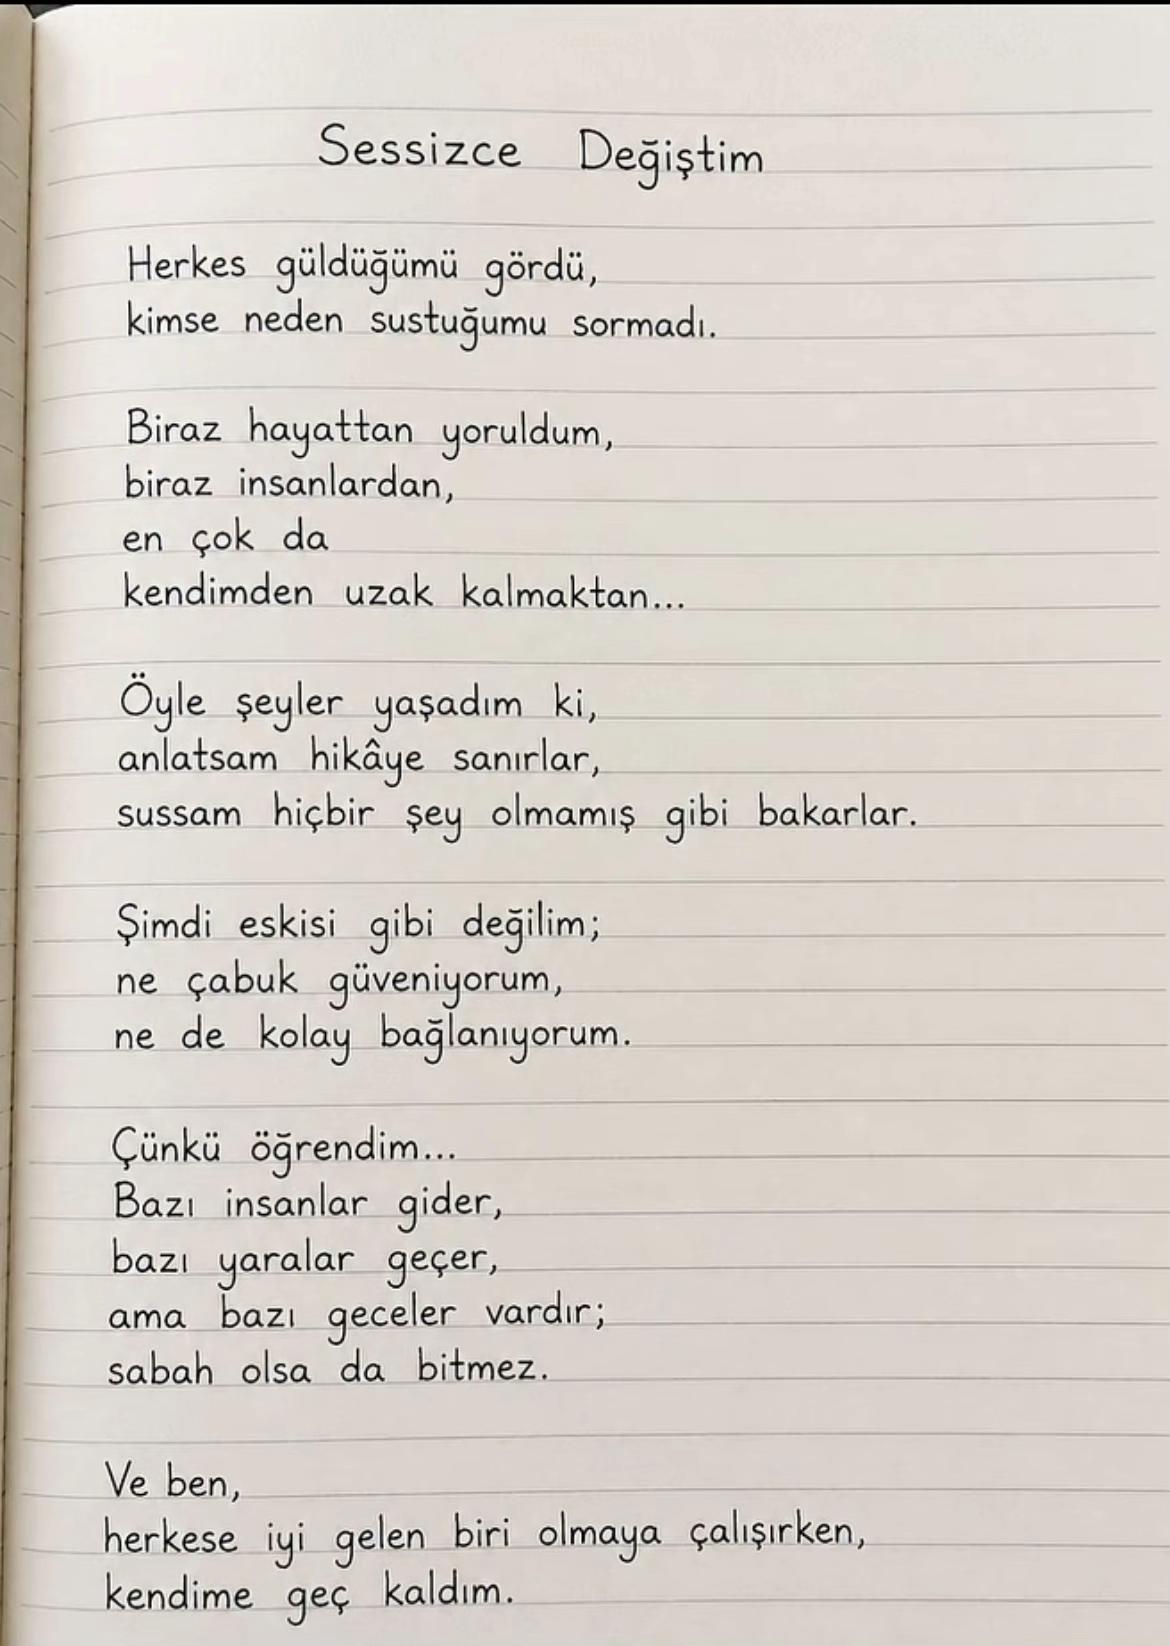 Sessizce Değiştim
Herkes güldüğümü gördü,
kimse neden sustuğumu sormadı.
Biraz hayattan yoruldum,
biraz insanlardan,
en çok da
kendimden uzak kalmaktan...
Öyle şeyler yaşadım ki,
anlatsam hikâye sanırlar,
sussam hiçbir şey olmamış gibi bakarlar.
Şimdi eskisi gibi değilim;
ne çabuk güveniyorum,
ne de kolay bağlanıyorum.
Çünkü öğrendim...
Bazı insanlar gider,
bazı yaralar geçer,
ama bazı geceler vardır;
sabah olsa da bitmez.
Ve ben,
herkese iyi gelen biri olmaya çalışırken,
kendime geç kaldım.